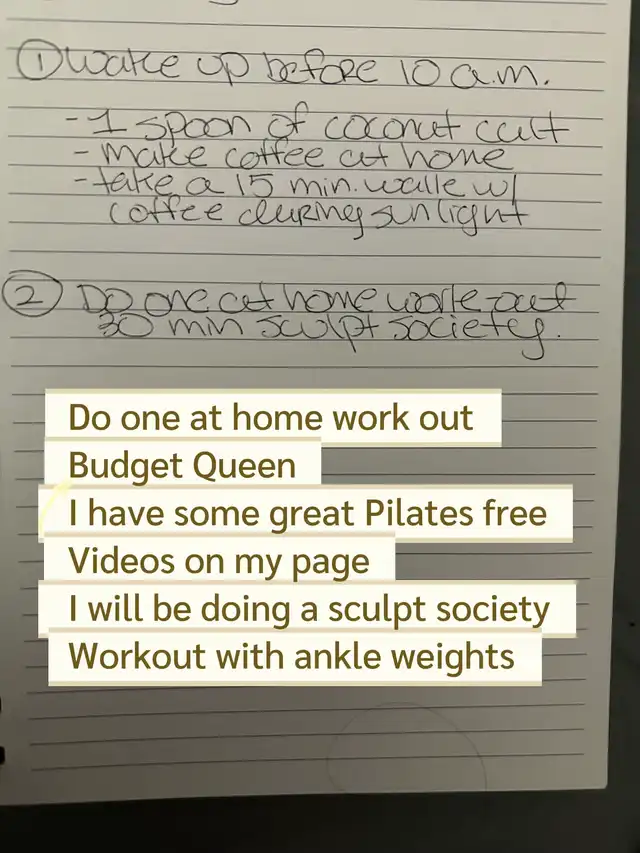 ① Wake up before 10 a.m.
- 1 spoon of coconut cult
- make coffee at home
- take a 15 min. walk w/
coffee during sunlight
② Do one at home work-out
30 min sculpt society.
Do one at home work out
Budget Queen
I have some great Pilates free
Videos on my page
I will be doing a sculpt society
Workout with ankle weights